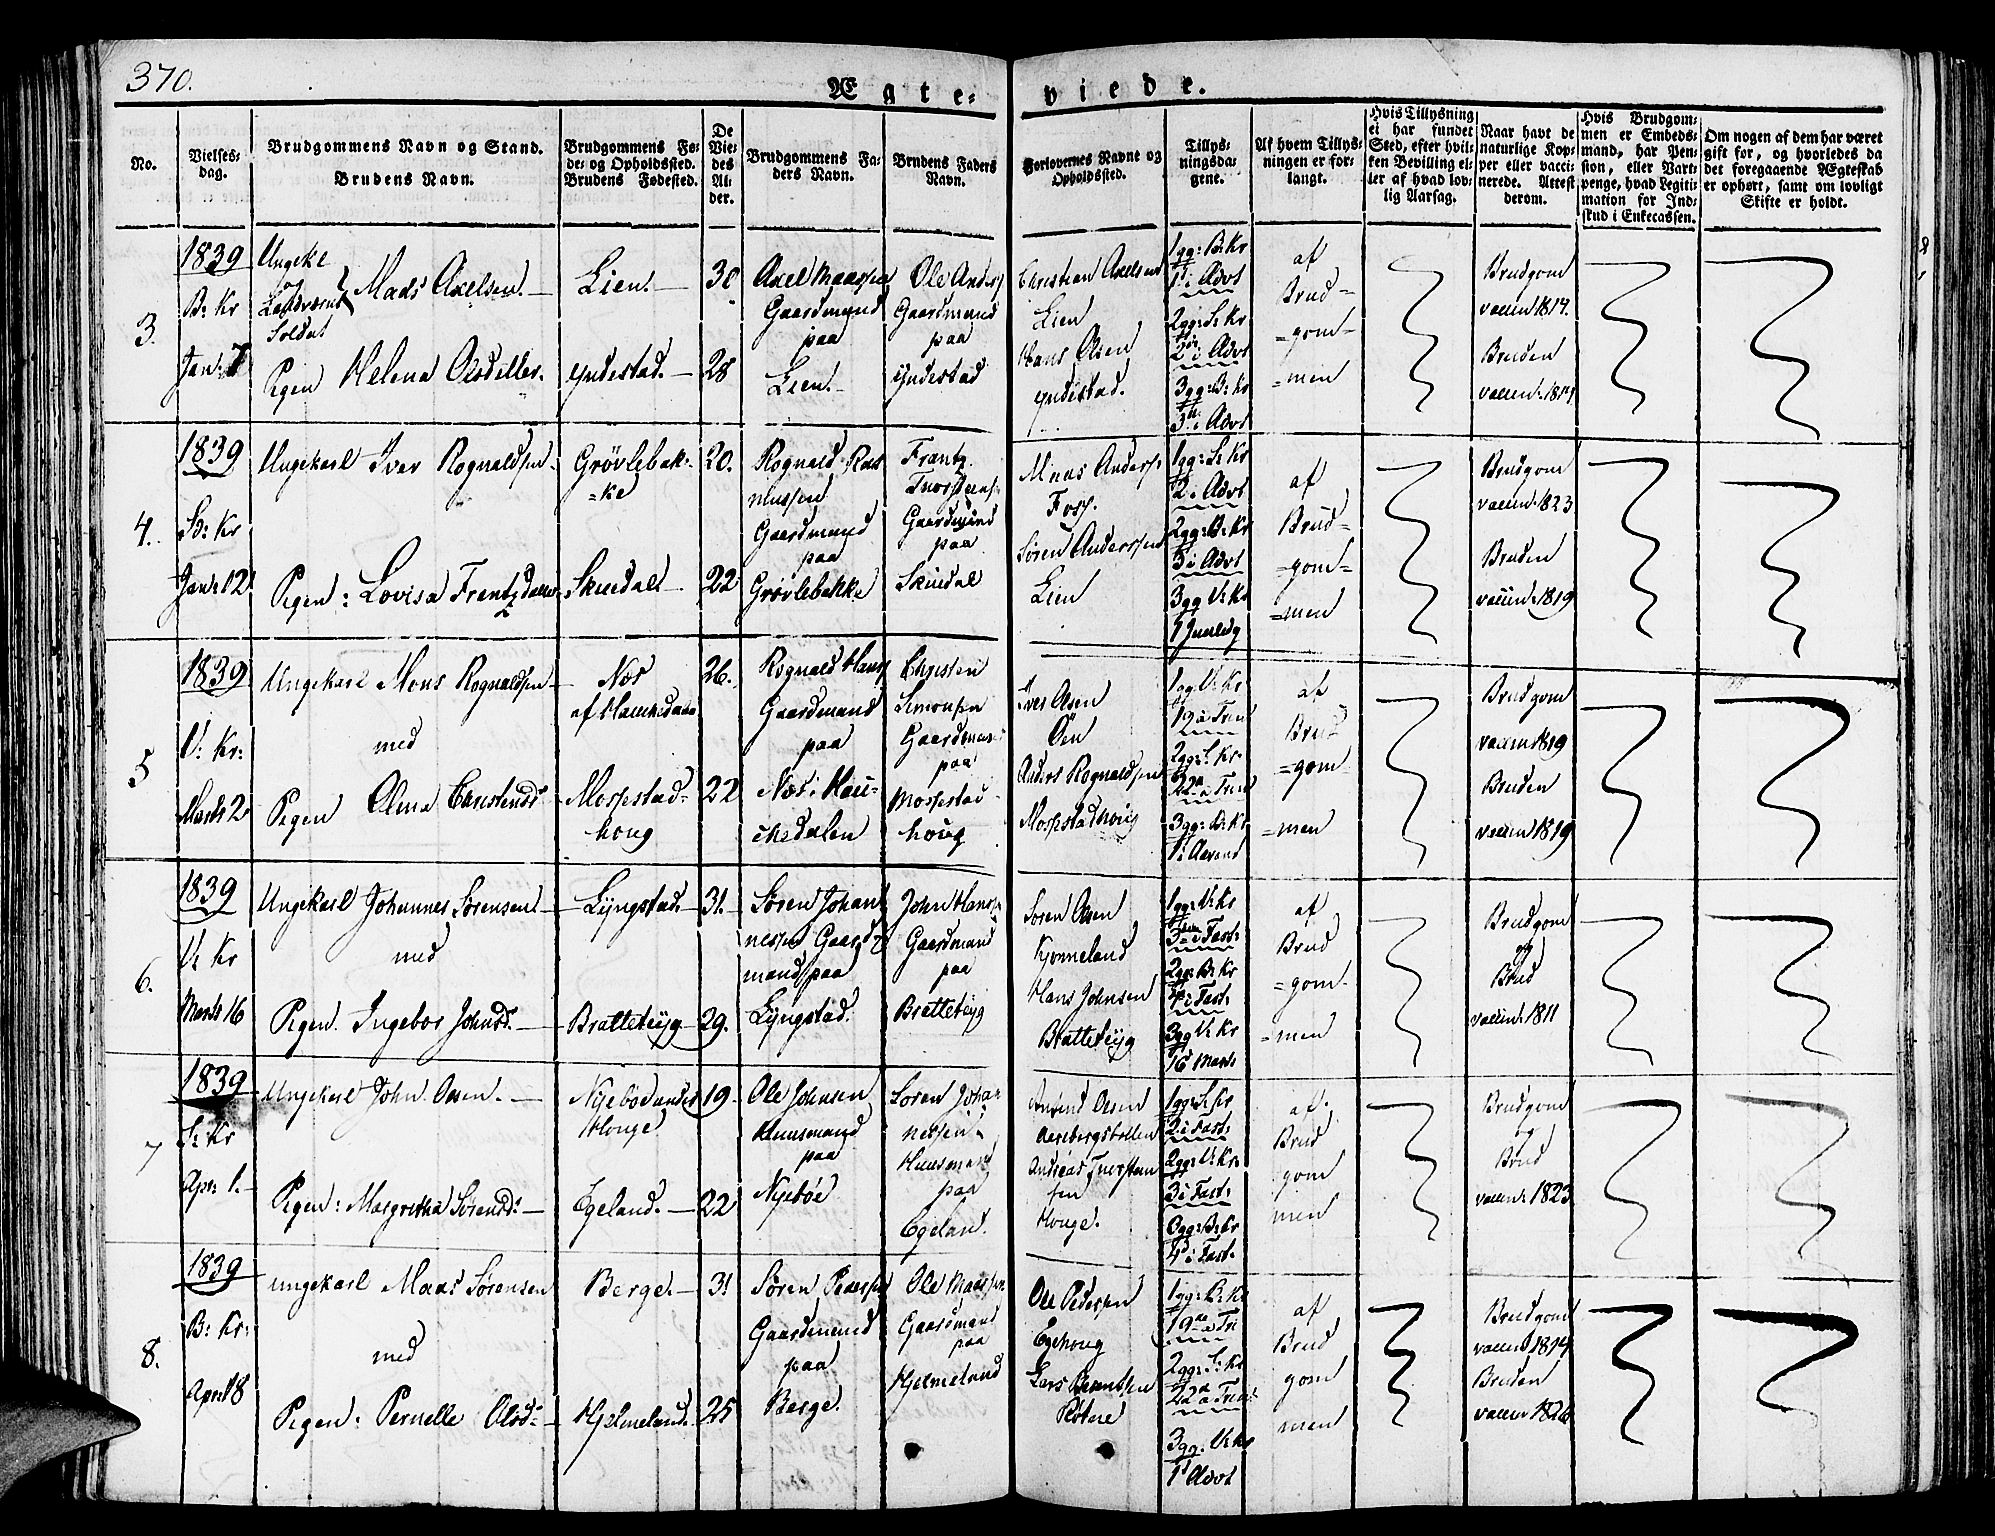 370.
Ægte- viede.
No.
Vielses-dag.
Brudgommens Navn og Stand.
Brudens Navn.
Brudgommens Fø-
de- og Opholdssted.
Brudens Fødested.
De
Vie-
des
Al-
der.
Brudgommens Fa-
ders Navn.
Brudens Faders
Navn.
Forlovernes Navne og
Opholdssted.
Tillys-
ningsda-
gene.
Af hvem Tillys-
ningen er for-
langt.
Hvis Tillysning
ei har fundet
Sted, efter hvil-
ken Bevilling el-
ler af hvad lov-
lig Aarsag.
Naar havt de
naturlige Kop-
per eller vacci-
nerede. Attest
derom.
Hvis Brudgom-
men er Embeds-
mand, har Pen-
sion, eller Vart-
penge, hvad Legiti-
mation for Ind-
skud i Enkecassen.
Om nogen af dem har været
gift før, og hvorledes da
det foregaaende Ægteskab
er ophørt, samt om lovligt
Skifte er holdt.
3.
1839
B: Kr
Jan: 7
Ungekl
og
Soldat
Mads Axelsen.
Pigen Helena Olsdtter.
Lien.
Yndestad.
30
28
Axel Madssen
Gaardmand
paa
Lien.
Ole Anders
Gaardmand
paa
Yndestad
Christian Axelsen
Lien
Hans Olsen
Yndestad.
1gg: B: Kr
1 i Advt
2gg: S: Kr
2 i Advt
3gg: B: Kr
3 i Advt
af
Brud=
=gom=
=men
Brudgom
vaccin 1814.
Bruden
vaccin: 1814
4.
1839
S: Kr
Jan: 12
Ungekarl Iver Rognaldsen
Pigen: Lovisa Frentzdatter
Grövlebak-
=ke
Skiudal
20.
22
Rognald Ras
mussen
Gaardmand
paa
Grövlebakke
Frantz
Gaardmand
paa
Skiudal
Anders:
Foss.
Sören Anderssen
Lien
1gg: S: Kr
2 i Advt
2gg: B: Kr
3 i Advt
3gg V: Kr
af
Brud=
=gom=
=men
Brudgom
vaccin: 1823
Bruden
vaccin: 1819
5
1839
V: Kr:
Marts 2
Ungekarl Mons Rognaldsen
med
Pigen Olena Christensd:
Næs
Mossestad-
houg
26.
22
Rognald Hans
Gaardmand
paa
Næs i Hau-
kedalen
Christen
Simonsen
Gaardmand
paa
Mossestad
houg
Iver Olsen
Öen
Anders Rognaldsen
Mossestadhoug
1gg: V: Kr
19 a Trin
2gg: S: Kr
22 a Trin
3gg: V: Kr
af
Brud
=gom
=men
Brudgom
vaccin 1819
Bruden
vaccin 1819
6.
1839
V: Kr
Marts 16
Ungekarl Johannes Sørensen
med
Pigen Ingebor Johnsd:
Lÿngstad
Bratteteÿg
31.
29.
Søren Johan
nessen Gaard
mand paa
Lÿngstad.
John Hanss
Gaardmand
paa
Bratteteÿg
Sören Olsen
Kjønneland
Hans Johnsen
Bratteteÿg
1gg: V: Kr
3 i Fast:
2gg: B: Kr
4 i Fast:
3gg V: Kr
16 Marts
af
Brud
=gom-
=men
Brudgom
og
Brud
vaccin: 1811
7
1839
S: Kr
Apr: 1.
Ungekarl John Olsen.
Pigen: Margretha Sørensd:
Nÿebø under
Houge
Egeland.
19
22
Ole Johnsen
Huusmand
paa
Nÿebøe
Sören Johan
nessen
Huusmand
paa
Egeland.
Olsen
Andreas
sen
Houge.
1gg: S: Kr
2 i Fast:
2gg: V: Kr:
3 i Fast:
3gg: B: Kr
4 i Fast:
af
Brud
gom
men
Brudgom
og
Brud
vaccin: 1823
8.
1839
B: Kr:
April 8
ungekarl Mads Sørensen
med
Pigen: Pernelle Olsd:
Berge.
Hjelmeland.
31
25
Søren Pederssen
Gaardmand
paa
Berge.
Ole Madssen
Gaardmand
paa
Hjelmeland
Ole Pedersen
Egehoug
Lars
1gg: B: Kr
19 a Tri
2gg: S: Kr
22 a Trin:
3gg: V: Kr
1 Advt
af
Brud
gom
men
Brudgom
vaccin 1814
Bruden
vaccin 1826